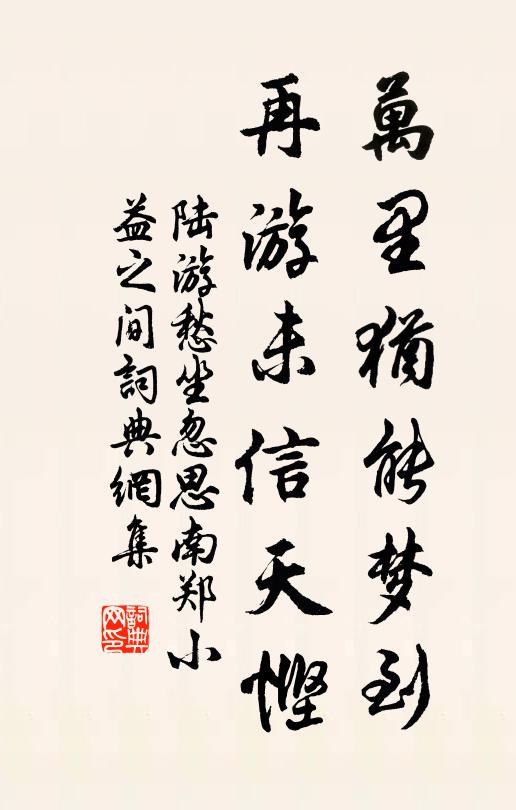 萬里猶能梦到
再游未信天慳
陆游愁坐忽思南郑小
益之间詞典網集
詞典
网印